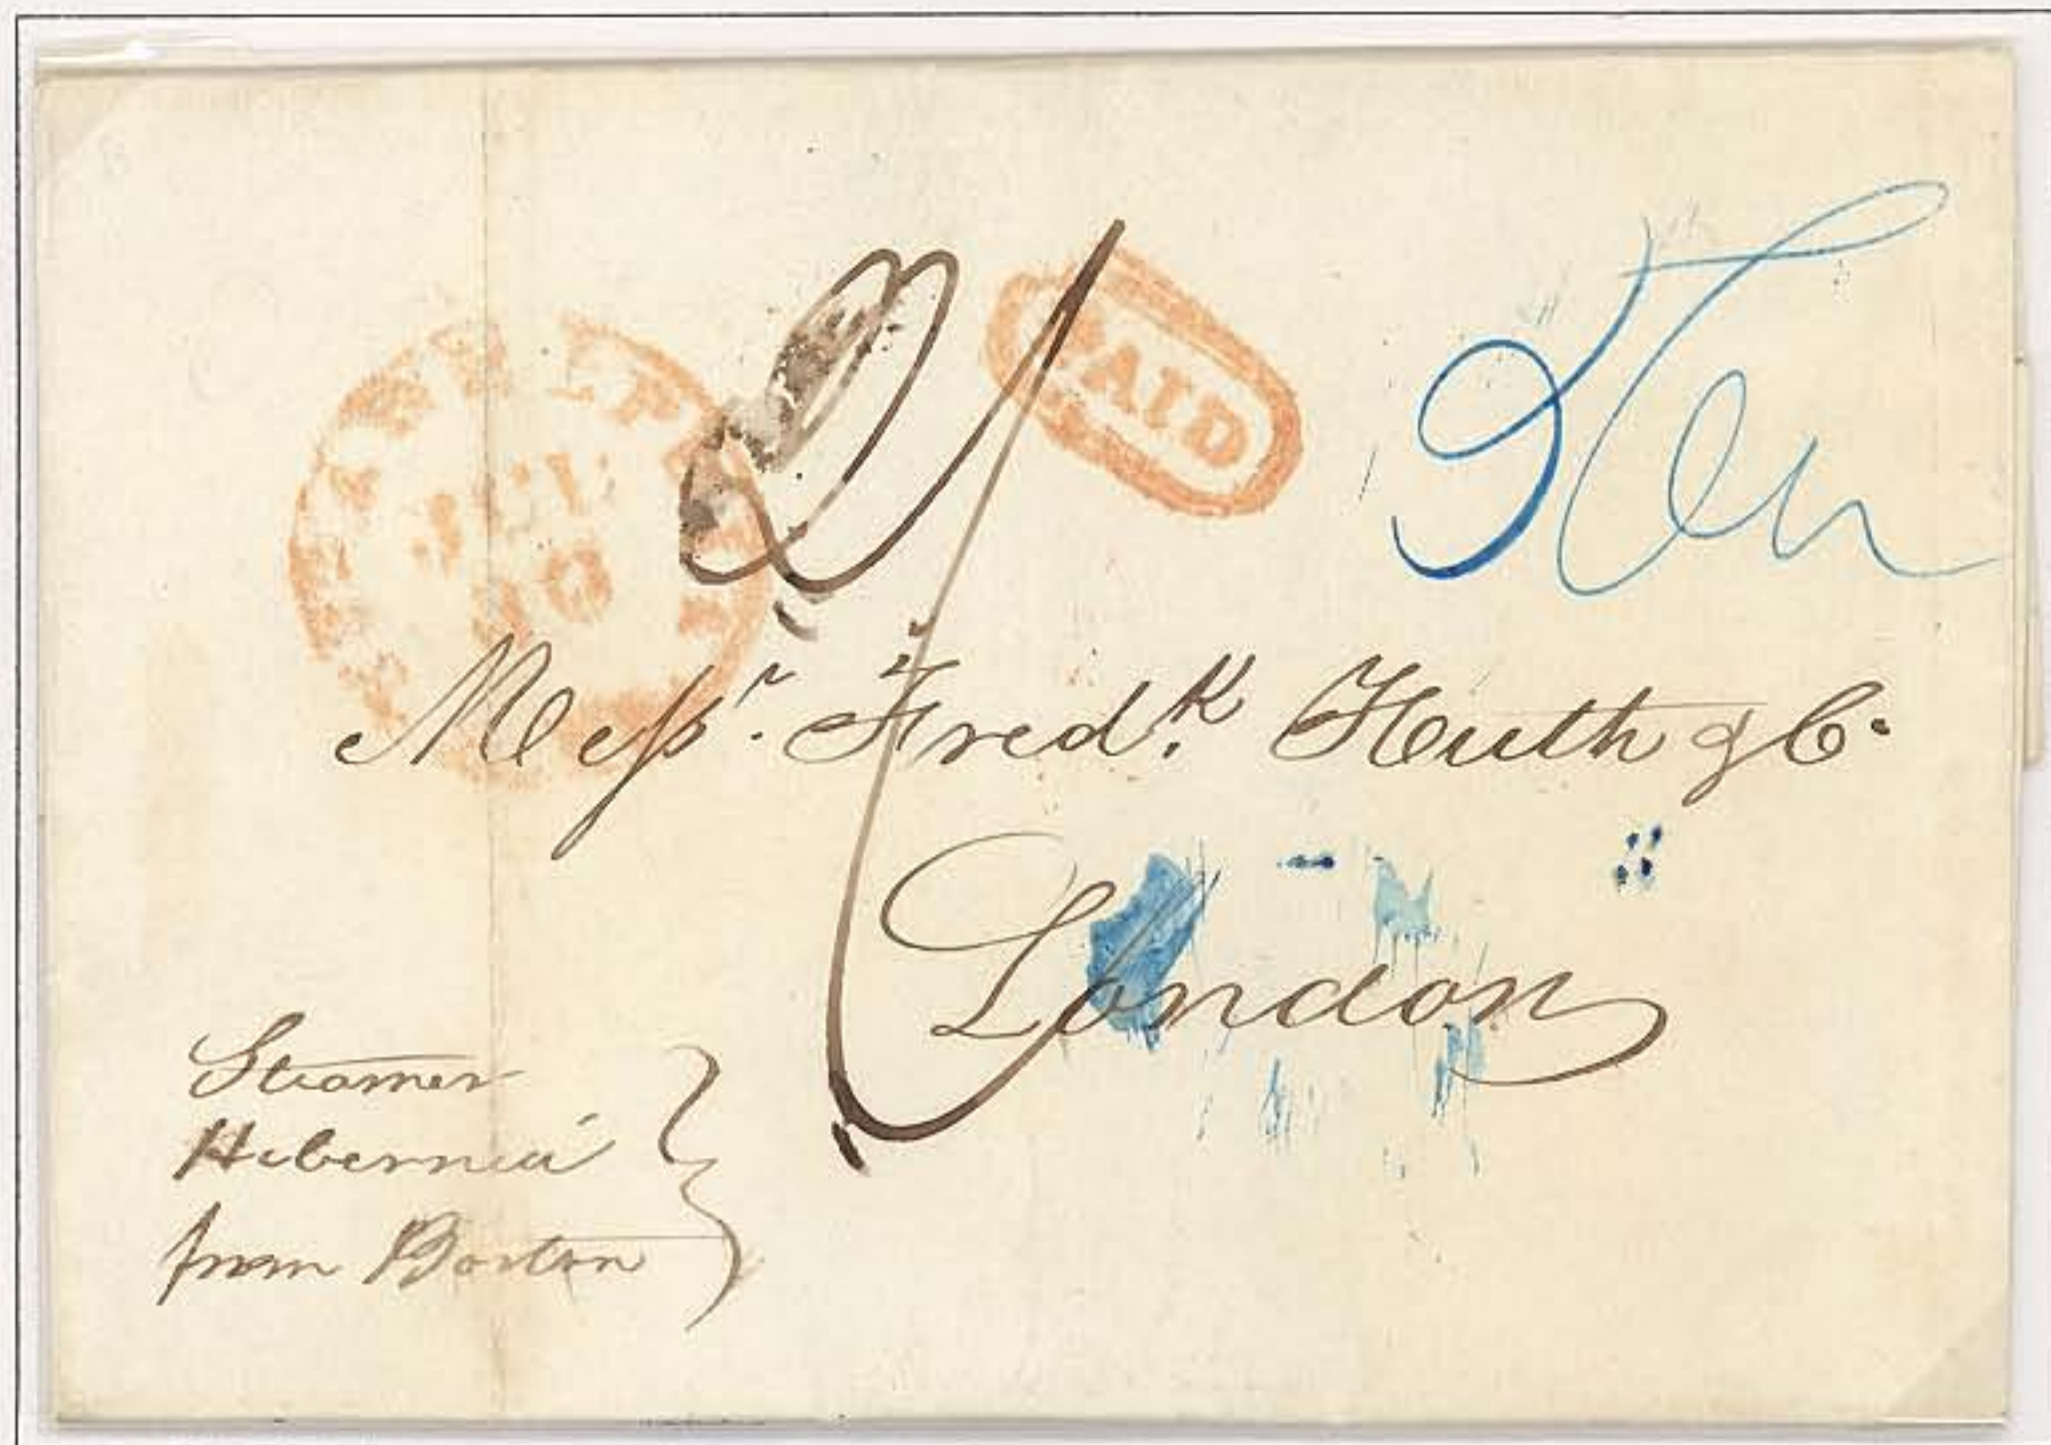 JUL
10
PAID
Messr. Fredk. Huth & Co
London
Steamer
Hibernia
from Boston